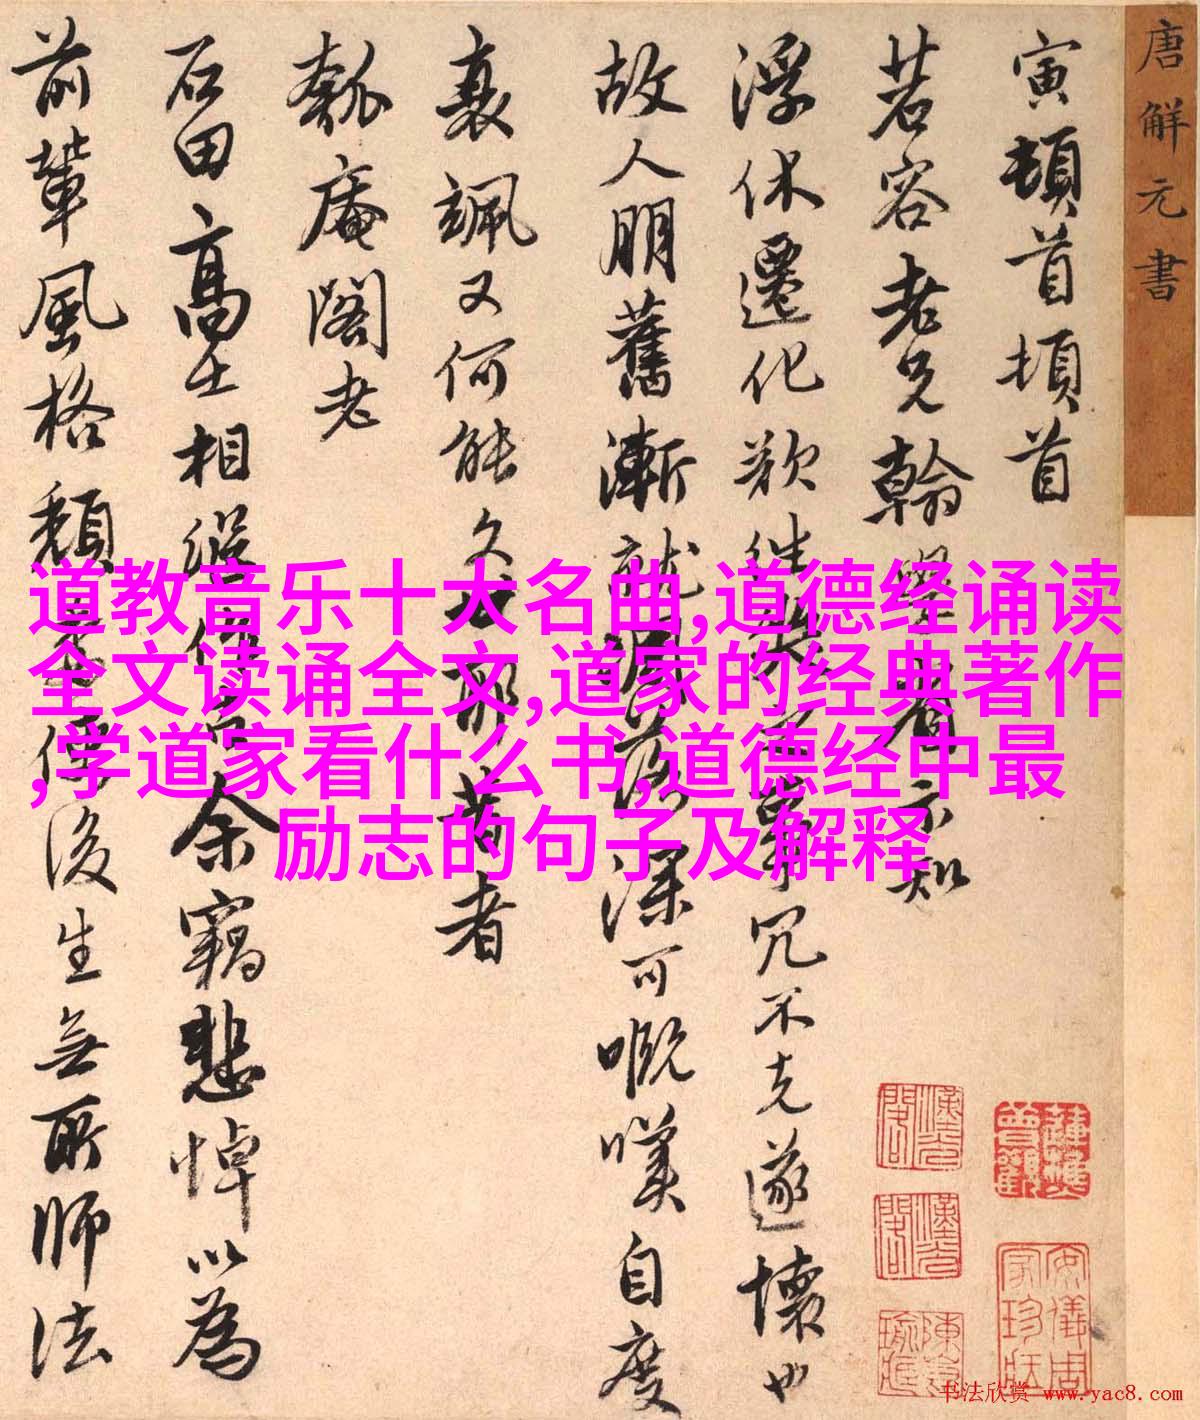 唐解元書
寅頓首頓首
茗容老兄翰
浮休遷化歎
故人朋舊漸就凋落深可嘅嘆自度
衰颯又何能久也耶昔者
瓠庵閣老
石田高士相繼余竊悲悼以為
前輩風格頹後生無所師法
冗不克遂懷也
示知
道教音乐十大名曲,道德经诵读
全文读诵全文,道家的经典著作
,学道家看什么书,道德经中最
励志的句子及解释
书法欣赏 www.yac8.com